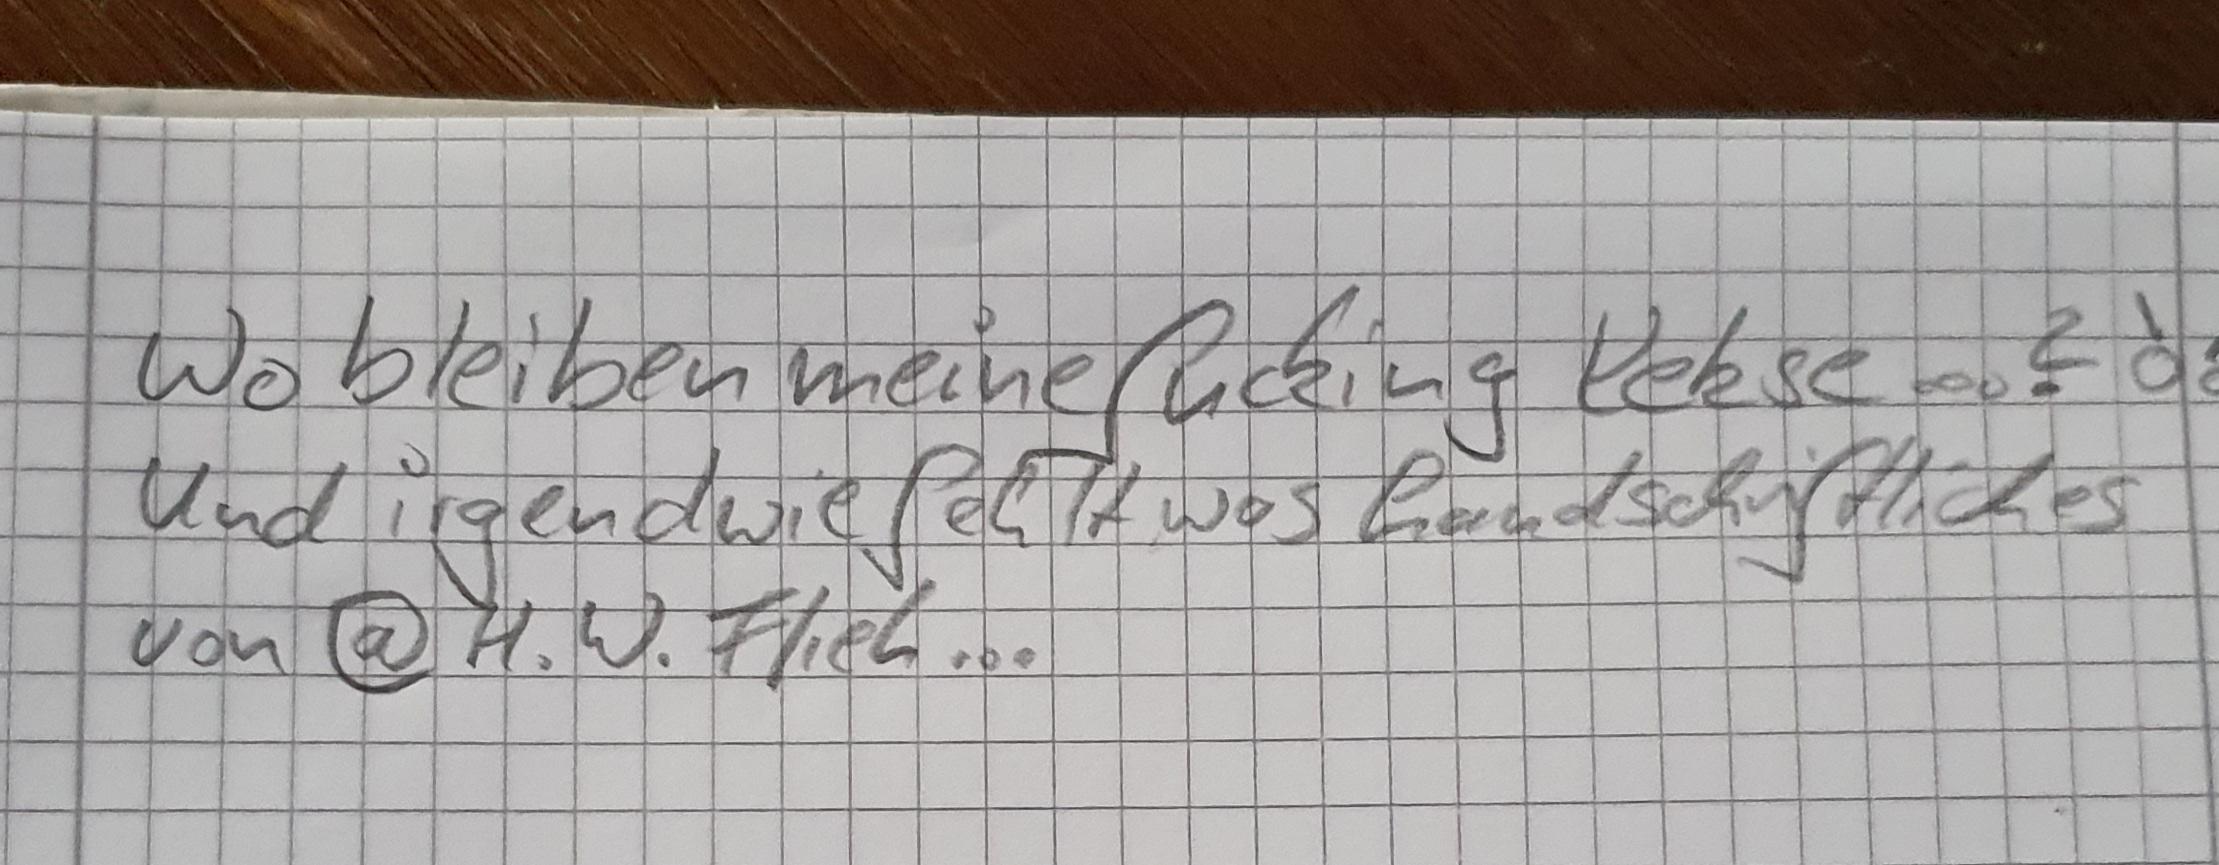 Wo bleiben meine fucking Kekse ...?
Und irgendwie fehlt was handschriftliches
von @ H. W. Flieh ...